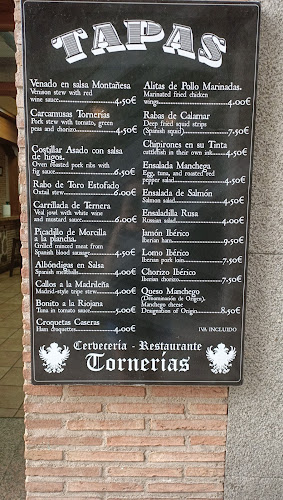 TAPAS
Venado en salsa Montañesa
Venison stew with red
wine sauce 4,50€
Carcamusas Tornerías
Pork stew with tomato, green
peas and chorizo 4,50€
Costillar Asado con salsa
de higos.
Oven roasted pork ribs with
fig sauce 6,50€
Rabo de Toro Estofado
Oxtail stew 6,00€
Carrillada de Ternera
Veal jowl with white wine
and mustard sauce 6.00€
Picadillo de Morcilla
a la plancha.
Grilled minced meat from
Spanish blood sausage 4,50€
Albóndigas en Salsa
Spanish meatballs 4,00€
Callos a la Madrileña
Madrid-style tripe stew 4,00€
Bonito a la Riojana
Tuna in tomato sauce 5,00€
Croquetas Caseras
Ham croquettes 4,00€
Alitas de Pollo Marinadas.
Marinated fried chicken
wings 4,00€
Rabas de Calamar
Deep fried squid strips
(Spanish squid) 7,50€
Chipirones en su Tinta
cuttlefish in their own ink 4,50€
Ensalada Manchega
Egg, tuna, and roasted red
pepper salad 4,50€
Ensalada de Salmón
Salmon salad 4,50€
Ensaladilla Rusa
Russian salad 4,00€
Jamón Ibérico
Iberian ham 9,50€
Lomo Ibérico
Iberian pork loin 7,50€
Chorizo Ibérico
Iberian chorizo 7,50€
Queso Manchego
(Denominación de Origen).
Manchego cheese
Designation of Origin 8,50€
IVA INCLUIDO
Cervecería - Restaurante
Tornerías